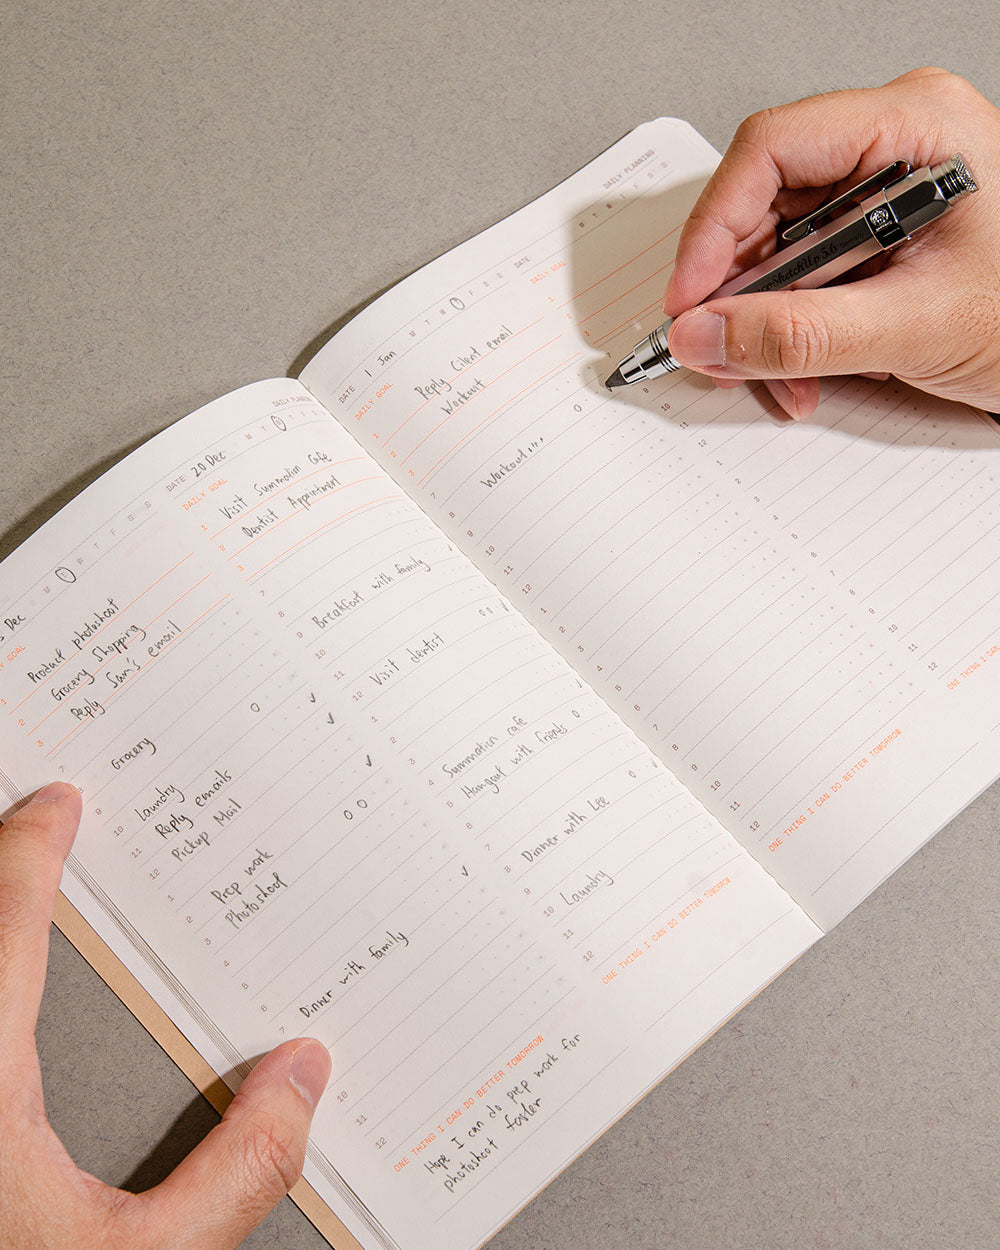 Dec
M T W T F S S
GOAL
1 Product photoshoot
2 Grocery Shopping
3 Reply Sam's email
7
8 Grocery
9
10 Laundry
11 Reply emails
12 Pickup Mail
1
2 Prep work
3 Photoshoot
4
5
6
7 Dinner with family
10
11
12
ONE THING I CAN DO BETTER TOMORROW
Hope I can do prep work for
photoshoot faster
DAILY PLANNING
DATE 20 Dec
M T W T F S S
DAILY GOAL
1 Visit Summation Cafe
2 Dentist Appointment
3
7
8
9 Breakfast with family
10
11
12 Visit dentist
1
2
3
4 Summation cafe
5 Hangout with friends
6
7
8 Dinner with Lee
9
10 Laundry
11
12
ONE THING I CAN DO BETTER TOMORROW
DATE 1 Jan
M T W T F S S
DAILY GOAL
1 Reply Cilent email
2 Workout
3
7
8 Workout...
9
10
11
12
1
2
3
4
5
6
7
8
9
10
11
12
ONE THING I CAN DO BETTER TOMORROW
DAILY PLANNING
DATE
M T W T F S S
DAILY GOAL
1
2
3
7
9
10
11
12
1
2
3
4
5
6
7
8
9
10
11
12
ONE THING I CAN
SketchUp 5.6